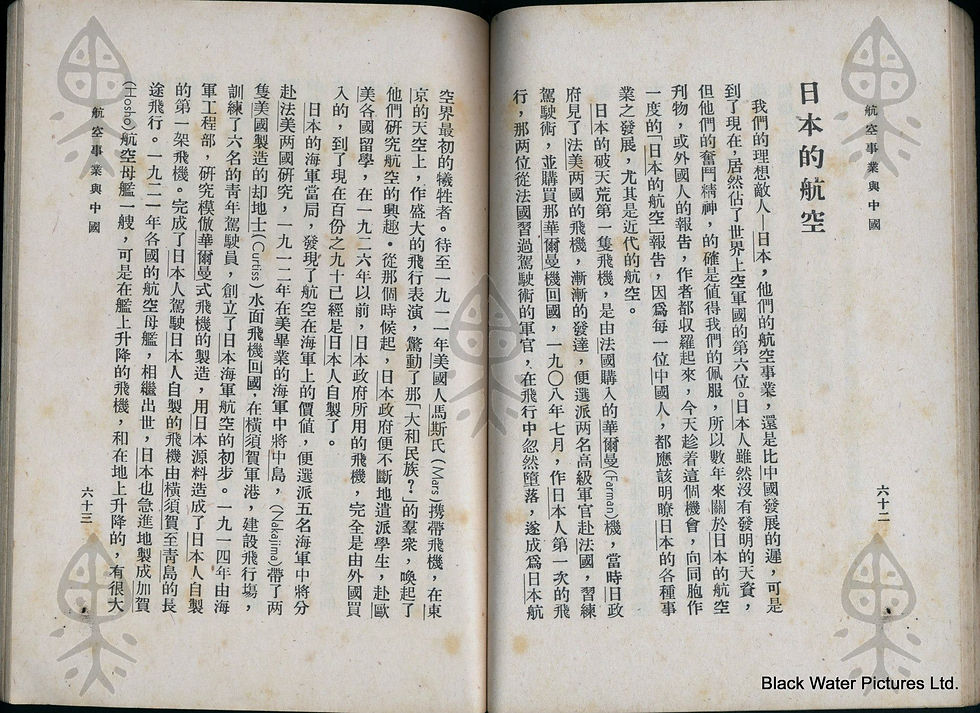 航空事業與中國
六十二
日本的航空
我們的理想敵人—日本，他們的航空事業，還是比中國發展的遲，可是
到了現在，居然佔了世界上空軍國的第六位。日本人雖然沒有發明的天資，
但他們的奮鬥精神，的確是值得我們的佩服，所以數年來關於日本的航空
刊物，或外國人的報告，作者都収羅起來，今天趁着這個機會，向同胞作
一度的「日本的航空」報告，因爲每一位中國人，都應該明瞭日本的各種事
業之發展，尤其是近代的航空。
日本的破天荒第一隻飛機，是由法國購入的華爾曼(Farman)機，當時日政
府見了法美两國的飛機，漸漸的發達，便選派两名高級軍官赴法國，習練
駕駛術，並購買那華爾曼機回國，一九〇八年七月，作日本人第一次的飛
行，那两位從法國習過駕駛術的軍官，在飛行中忽然墮落，遂成爲日本航
空界最初的犧牲者。待至一九一一年美國人馬斯氏(Mars)携帶飛機，在東
京的天空上，作盛大的飛行表演，驚動了那「大和民族？」的羣衆，喚起了
他們硏究航空的興趣。從那個時候起，日本政府便不斷地遣派學生，赴歐
美各國留學，在一九二六年以前，日本政府所用的飛機，完全是由外國買
入的，到了現在百份之九十已經是日本人自製了。
日本的海軍當局，發現了航空在海軍上的價値，便選派五名海軍中將分
赴法美两國硏究，一九一二年在美畢業的海軍中將中島，(Nakajima)帶了两
隻美國製造的却地士(Curtiss)水面飛機回國，在橫須賀軍港，建設飛行塲，
訓練了六名的靑年駕駛員，創立了日本海軍航空的初步。一九一四年由海
軍工程部，硏究模倣華爾曼式飛機的製造，用日本源料造成了日本人自製
的第一架飛機。完成了日本人駕駛日本人自製的飛機由橫須賀至靑島的長
途飛行。一九二一年各國的航空母艦，相繼出世，日本也急進地製成加賀
(Hosho)航空母艦一艘，可是在艦上升降的飛機，和在地上升降的，有很大
航空事業與中國
六十三
Black Water Pictures Ltd.